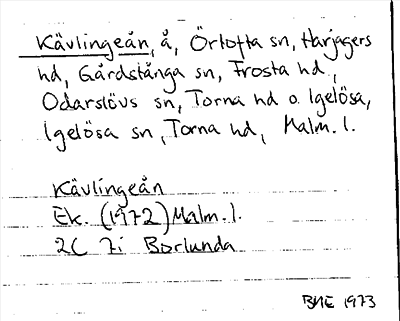 Kävlingeån, å, Örtofta sn, Harjagers
hd, Gårdstånga sn, Frosta hd,
Odarslövs sn, Torna hd o. Igelösa,
Igelösa sn, Torna hd, Malm. l.
Kävlingeån
Ek. (1972) Malm. l.
2C 7i Borlunda
BHE 1973